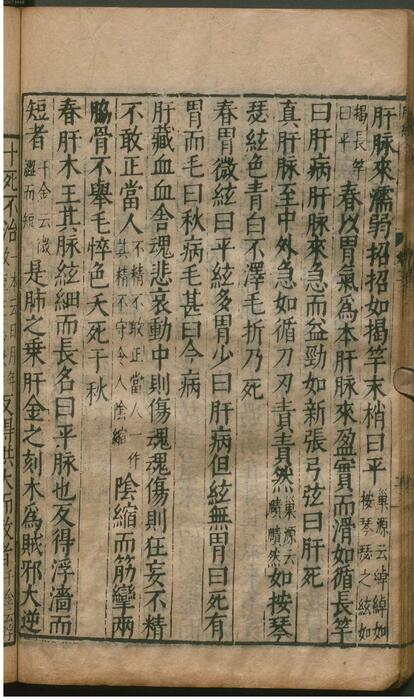 肝脉來濡弱招招如揭竿末梢曰平巢源云綽綽如按琴瑟之絃如
揭長竿曰平春以胃氣爲本肝脉來盈實而滑如循長竿
曰肝病肝脉來急而益勁如新張弓弦曰肝死
真肝脉至中外急如循刀刃責責然巢源云賾賾然如按琴
瑟絃色青白不澤毛折乃死
春胃微絃曰平絃多胃少曰肝病但絃無胃曰死有
胃而毛曰秋病毛甚曰今病
肝藏血血舍魂悲哀動中則傷魂魂傷則狂妄不精
不敢正當人不精不敢正當人一作其精不守令人陰縮陰縮而筋攣兩
脇骨不舉毛悴色夭死于秋
春肝木王其脉絃細而長名曰平脉也反得浮濇而
短者千金云微濇而短是肺之乗肝金之刻木爲賊邪大逆
十死不治
反得洪大而散者千金云